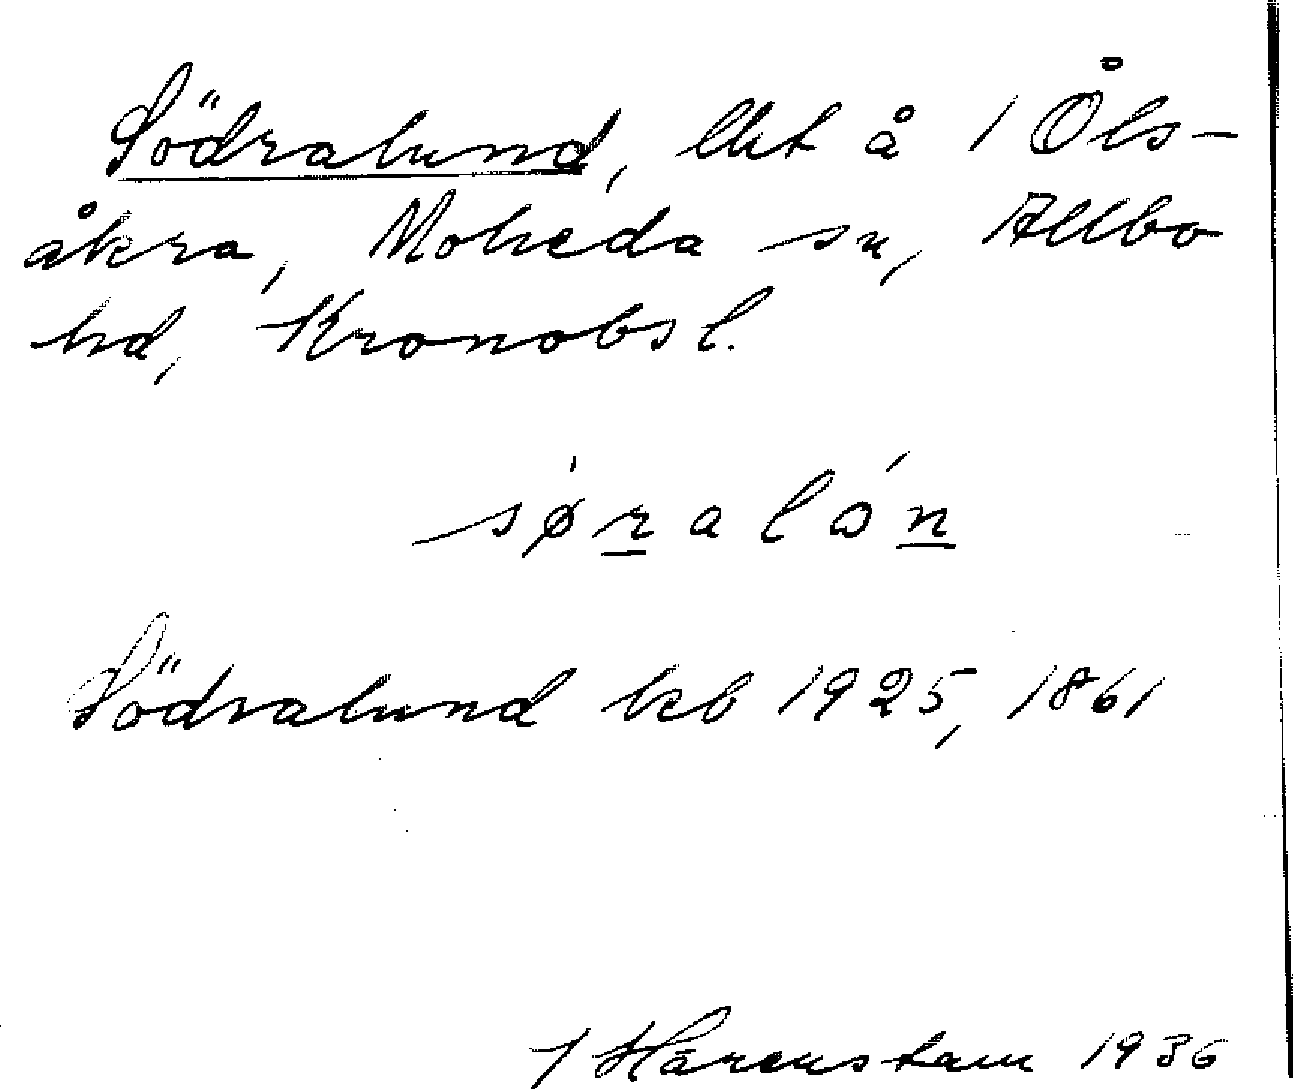 Södralund, lht å 1 Åls-
åkra, Moheda sn, Allbo
hd, Kronobsl.
sø̀ralón
Södralund kb 1925, 1861
J Härenstam 1936